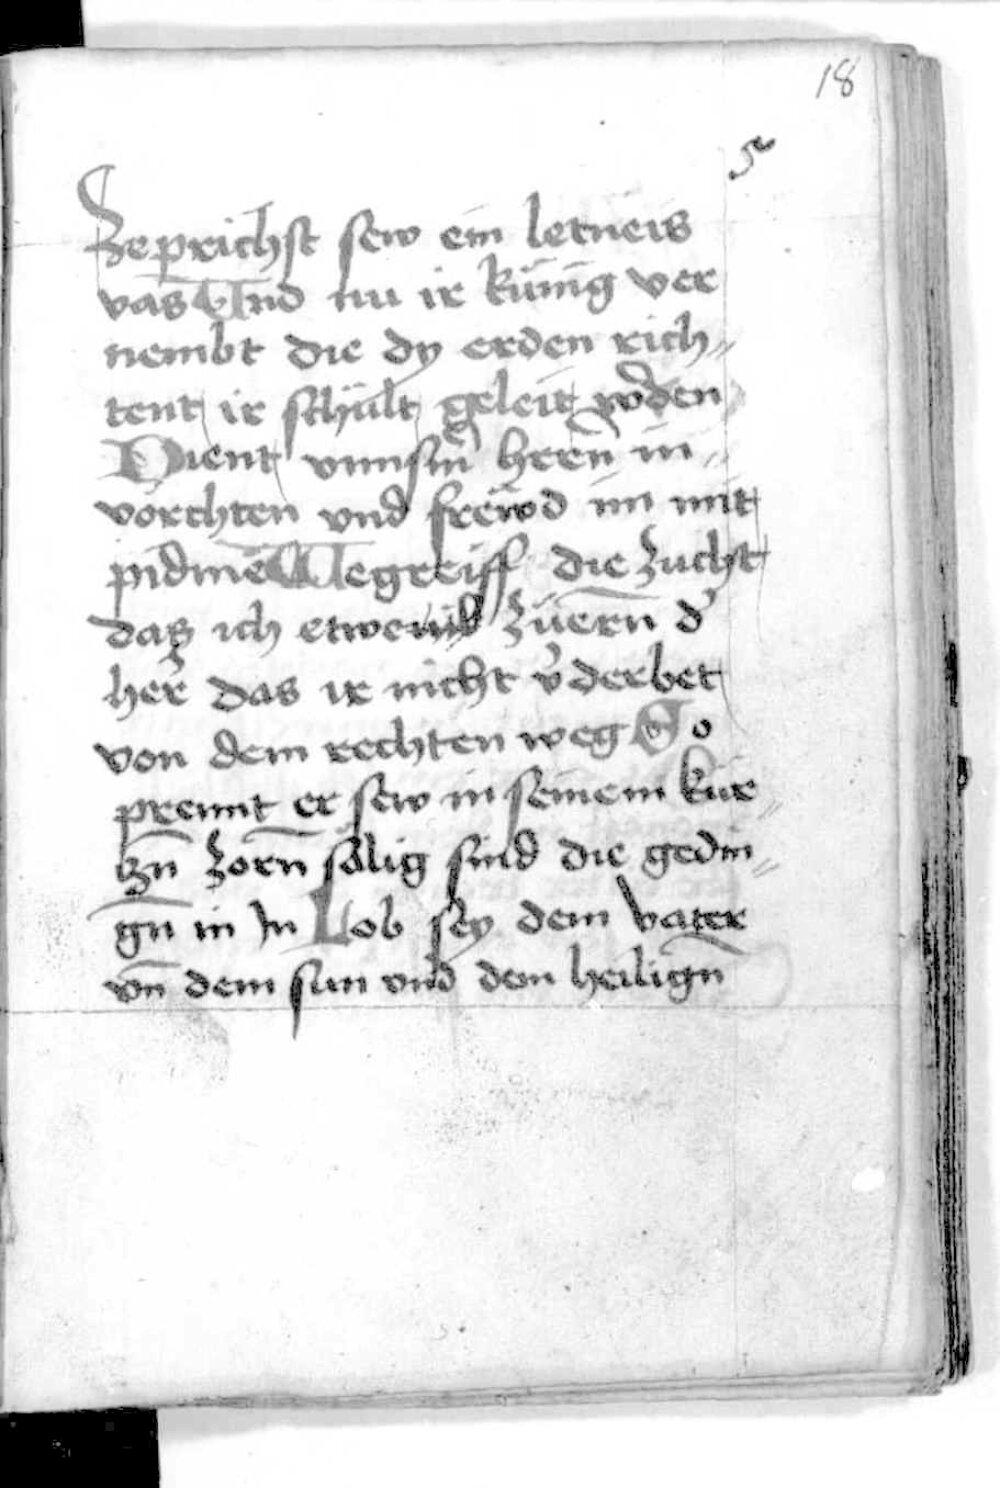 18
5
Zeprichst sew ein letneis
vas Und nu ir künig ver
nembt die dy erden rich„
tent ir schült geleit wͦden
Dient vnnsm̄ herrn̄ in„
vorchten vnd frewd im mit
pidmē Wegreiff die zucht
das ich etwenn zuern̄ d'
her das ir nicht v̄derbet
von dem rechten weg So
prennt er sew in seinem kür
tzn̄ zorn̄ sälig sind die gedin„
gn̄ in In Lob sey dem vater
vn̄ dem sun vnd dem heilign̄